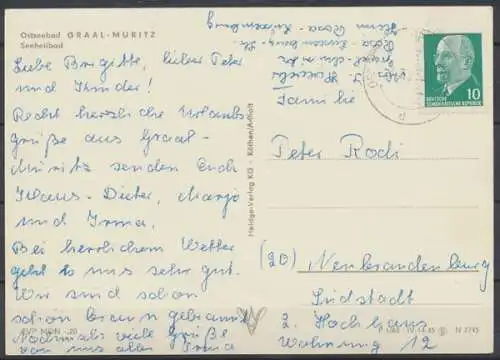 Ostseebad GRAAL-MÜRITZ
Seeheilbad
Liebe Brigitte, lieber Peter
und Kinder!
Recht herzliche Urlaubs
grüße aus Graal-
Müritz senden Euch
Klaus-Dieter, Margo
und Irma.
Bei herrlichem Wetter
geht es uns sehr gut.
Wir sind schon
schön braun gebrannt.
Nochmals viele Grüße
von uns allen Irma
EVP MDN -.20
Heldge-Verlag KG - Köthen/Anhalt
Heim Rosa-Luxemburg
Rosa-Luxemburg-Str.
DEUTSCHE
DEMOKRATISCHE REPUBLIK
10
Familie
Peter Rodi
(20) Neubrandenburg
Südstadt
2. Hochhaus
Wohnung 12
N 3745